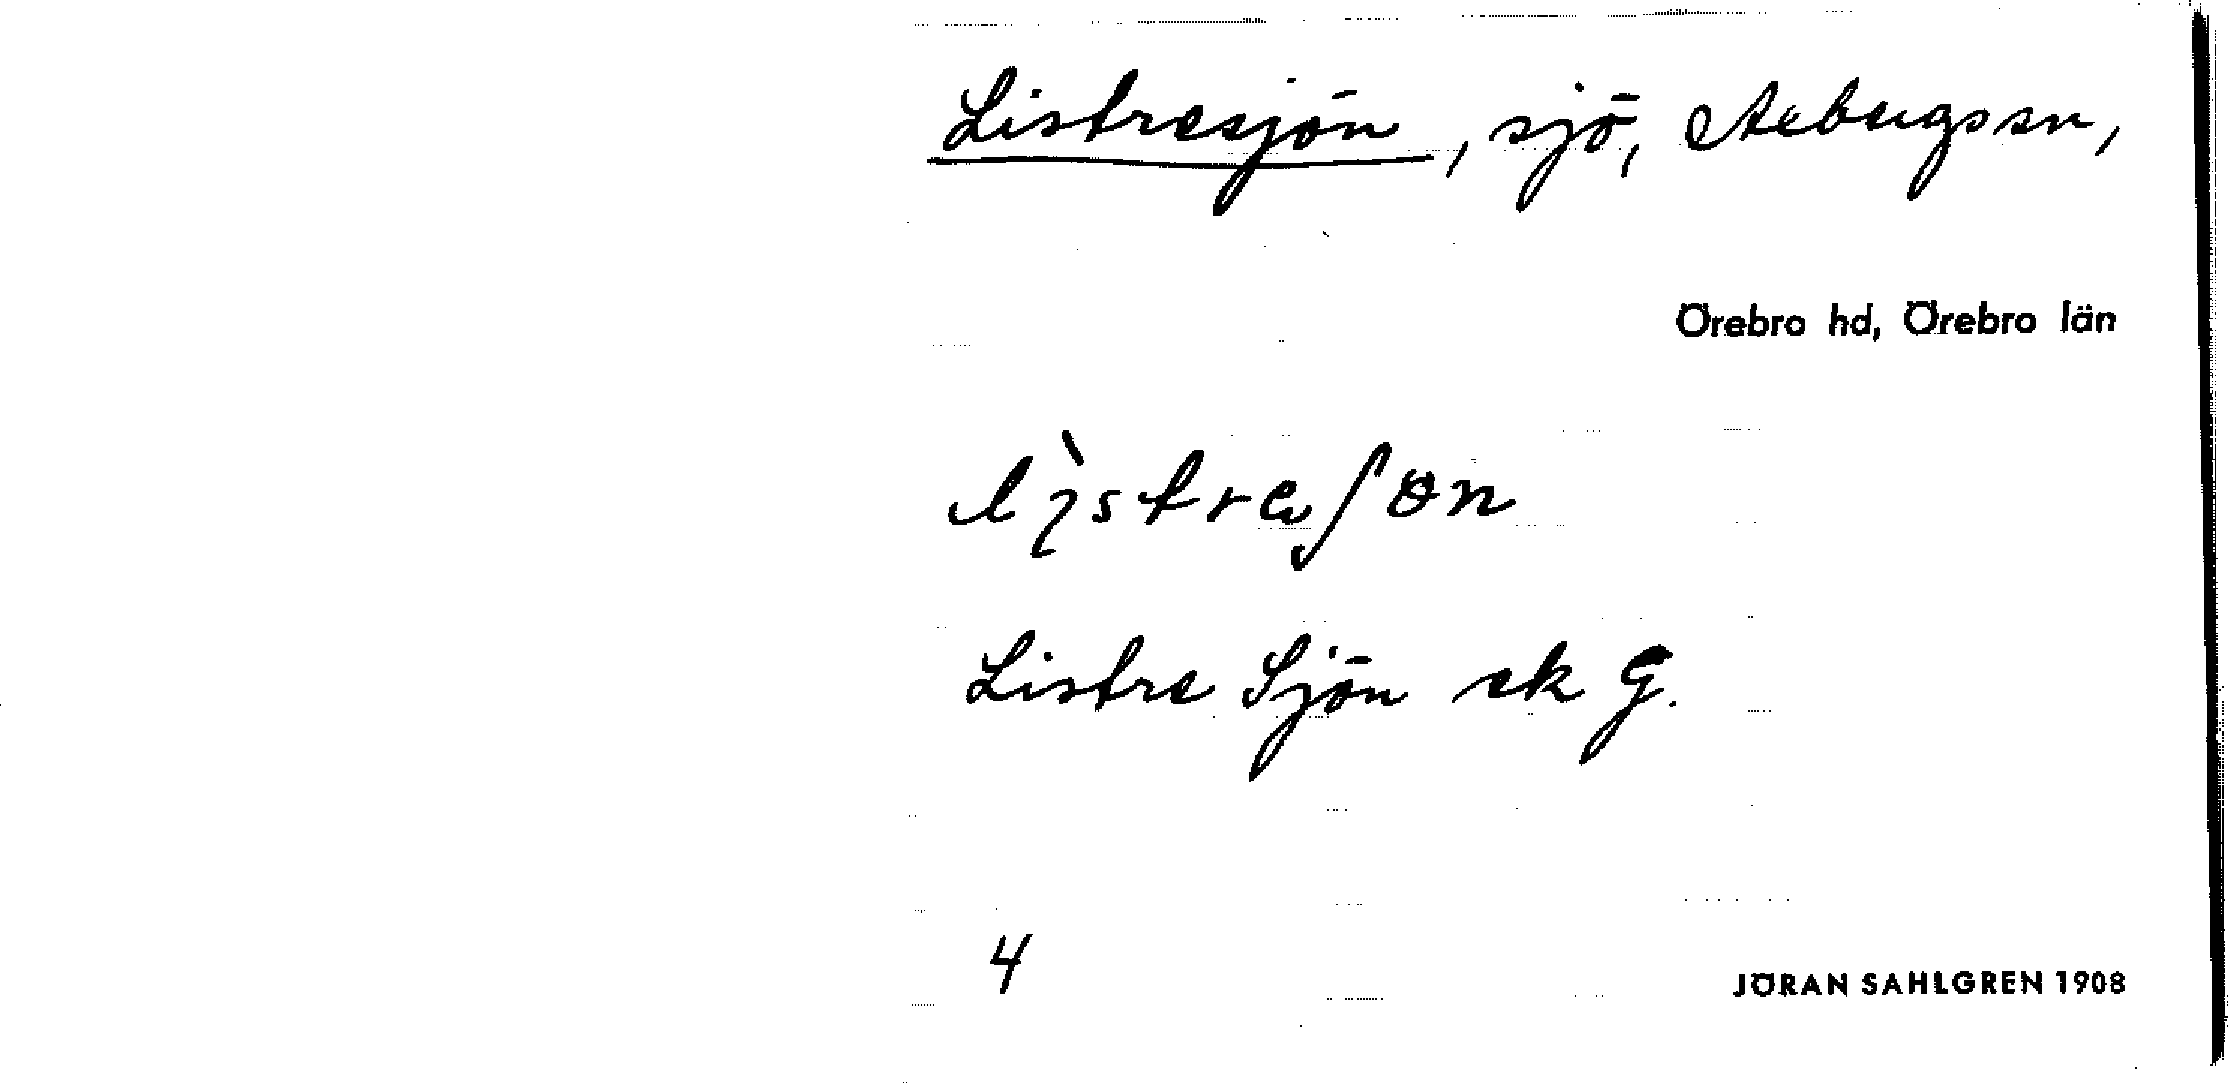 Listresjön, sjö, Axbergs sn,
Örebro hd, Örebro län
Listre Sjön ek G.
4
JÖRAN SAHLGREN 1908